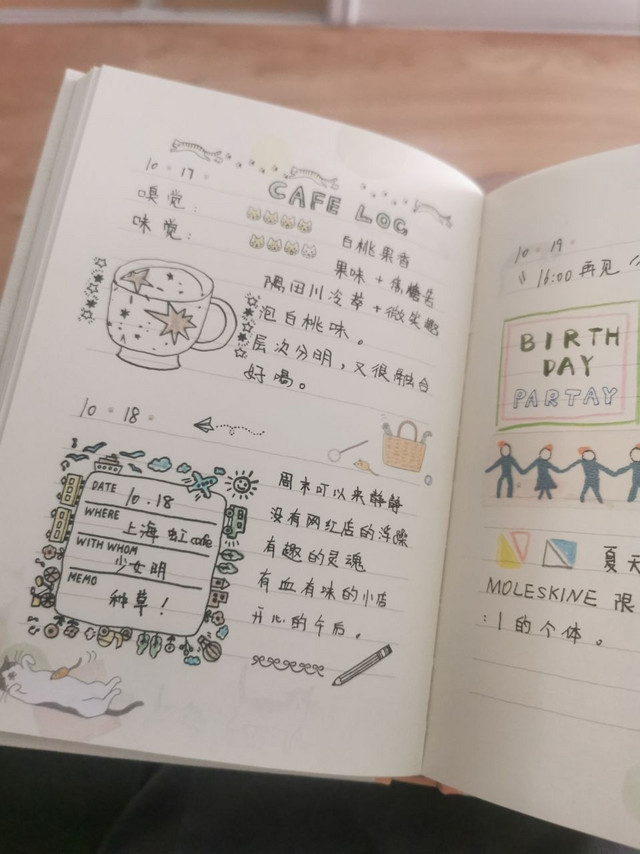 10·17·
CAFE LOG
嗅觉：
味觉：
白桃果香
果味+焦糖苦
隅田川冷萃+微笑趣
泡白桃味。
层次分明，又很融合
好喝。
10·18·
DATE 10.18
WHERE
上海虹cafe
WITH WHOM
少女明
MEMO
种草！
周末可以来静静
没有网红店的浮噪
有趣的灵魂
有血有味的小店
开心的午后。
10·19·
16:00再见
BIRTH
DAY
PARTAY
夏天
MOLESKINE 限
:1的个体。